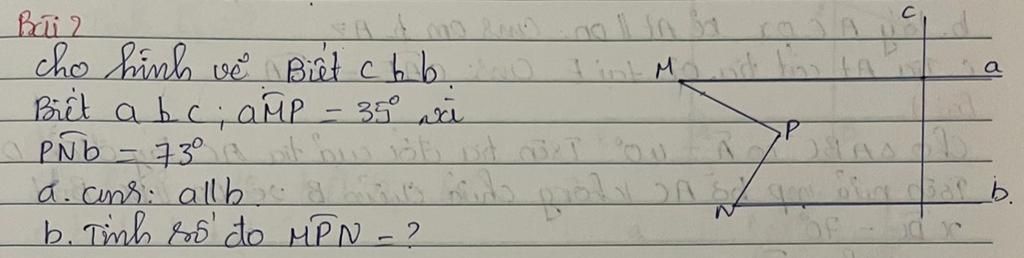 Bài 2
Cho hình vẽ Biết c b b
Biết a b c ; aMP = 35° và
PNb = 73°
a. cmr: a//b.
b. Tính số đo MPN = ?
c
M
a
P
N
b.